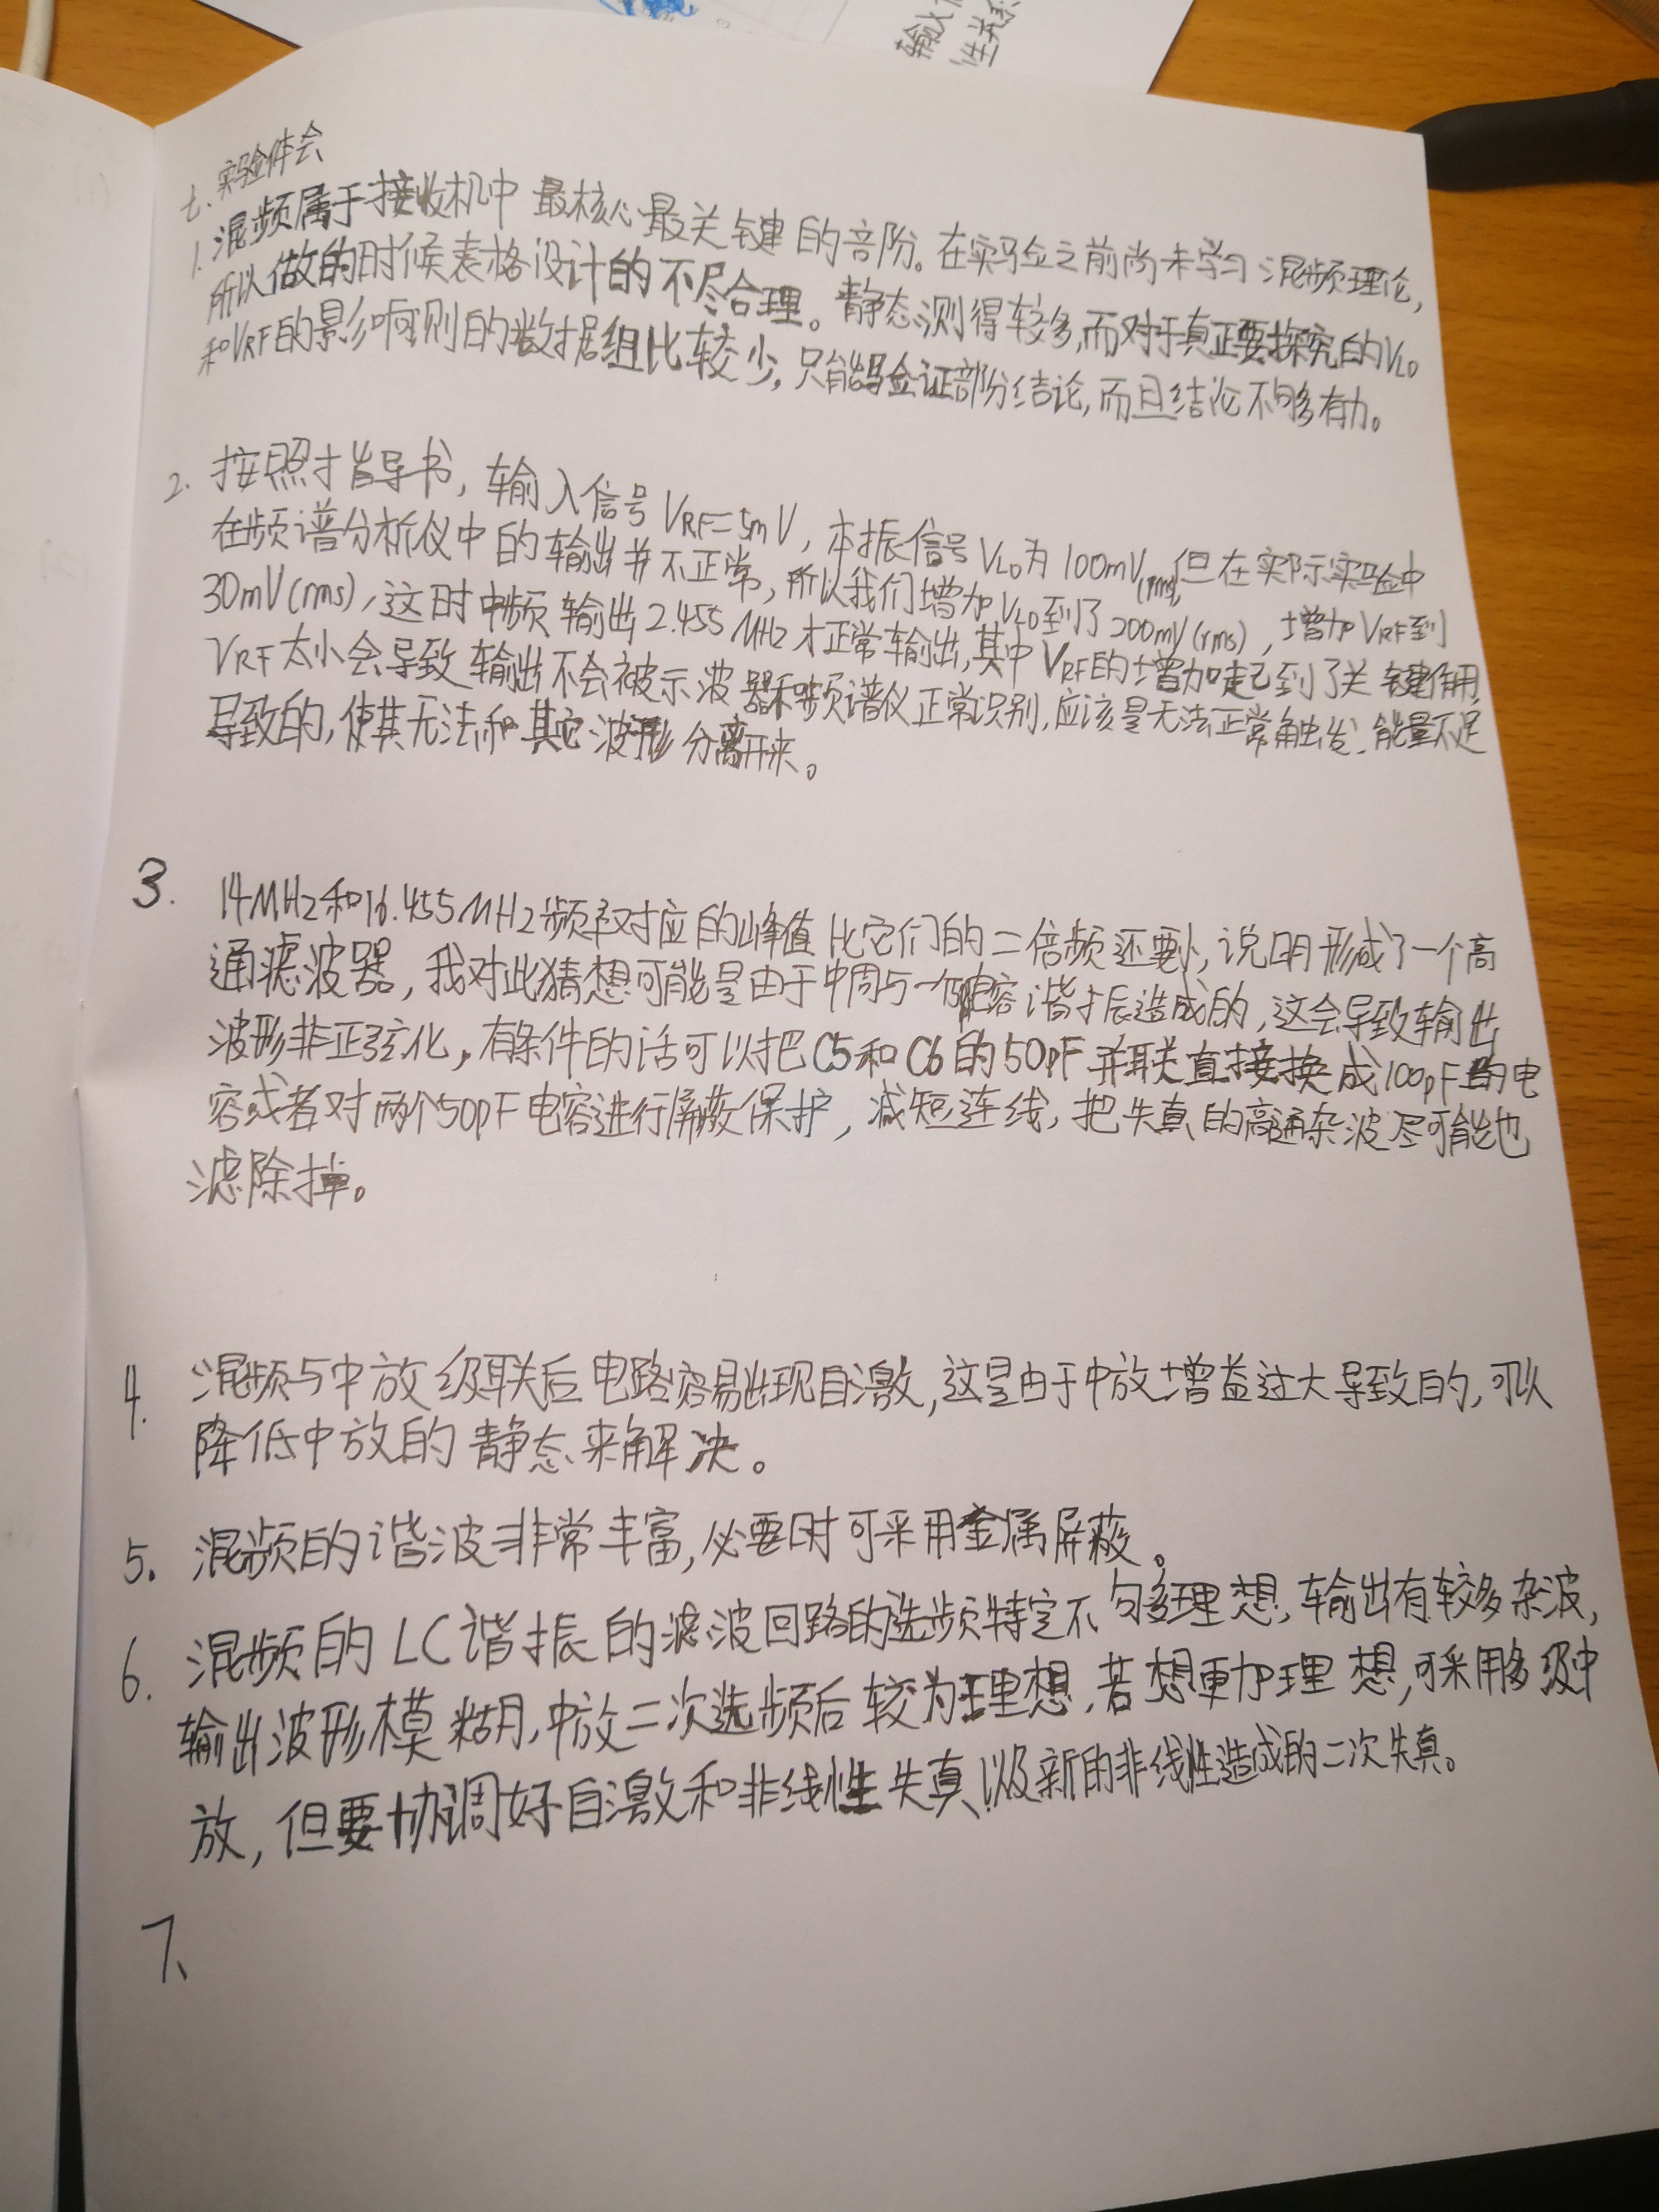 输入
性关系
七、实验体会
1. 混频属于接收机中最核心最关键的部阶。在实验之前尚未学习混频理论,
所以做的时候表格设计的不尽合理。静态测得较多,而对于真正要探究的VLO
和VRF的影响则的数据组比较少,只能验证部分结论,而且结论不够有力。
2. 按照指导书,输入信号VRF=5mV,本振信号VLO为100mV(rms),但在实际实验中
在频谱分析仪中的输出并不正常,所以我们增加VLO到了200mV(rms),增加VRF到
30mV(rms),这时中频输出2.455MHz才正常输出,其中VRF的增加起到了关键作用,
VRF太小会导致输出不会被示波器和频谱仪正常识别,应该是无法正常触发、能量不足
导致的,使其无法和其它波形分离开来。
3. 14MHz和16.455MHz频率对应的峰值比它们的二倍频还要小,说明形成了一个高
通滤波器,我对此猜想可能是由于中周与一些电容谐振造成的,这会导致输出
波形非正弦化,有条件的话可以把C5和C6的50pF并联直接换成100pF的电
容或者对两个50pF电容进行屏蔽保护,减短连线,把失真的高通杂波尽可能地
滤除掉。
4. 混频与中放级联后电路容易出现自激,这是由于中放增益过大导致的,可以
降低中放的静态来解决。
5. 混频的谐波非常丰富,必要时可采用金属屏蔽。
6. 混频的LC谐振的滤波回路的选频特定不够理想,输出有较多杂波,
输出波形模糊,中放二次选频后较为理想,若想更加理想,可采用多级中
放,但要协调好自激和非线性失真以及新的非线性造成的二次失真。
7、